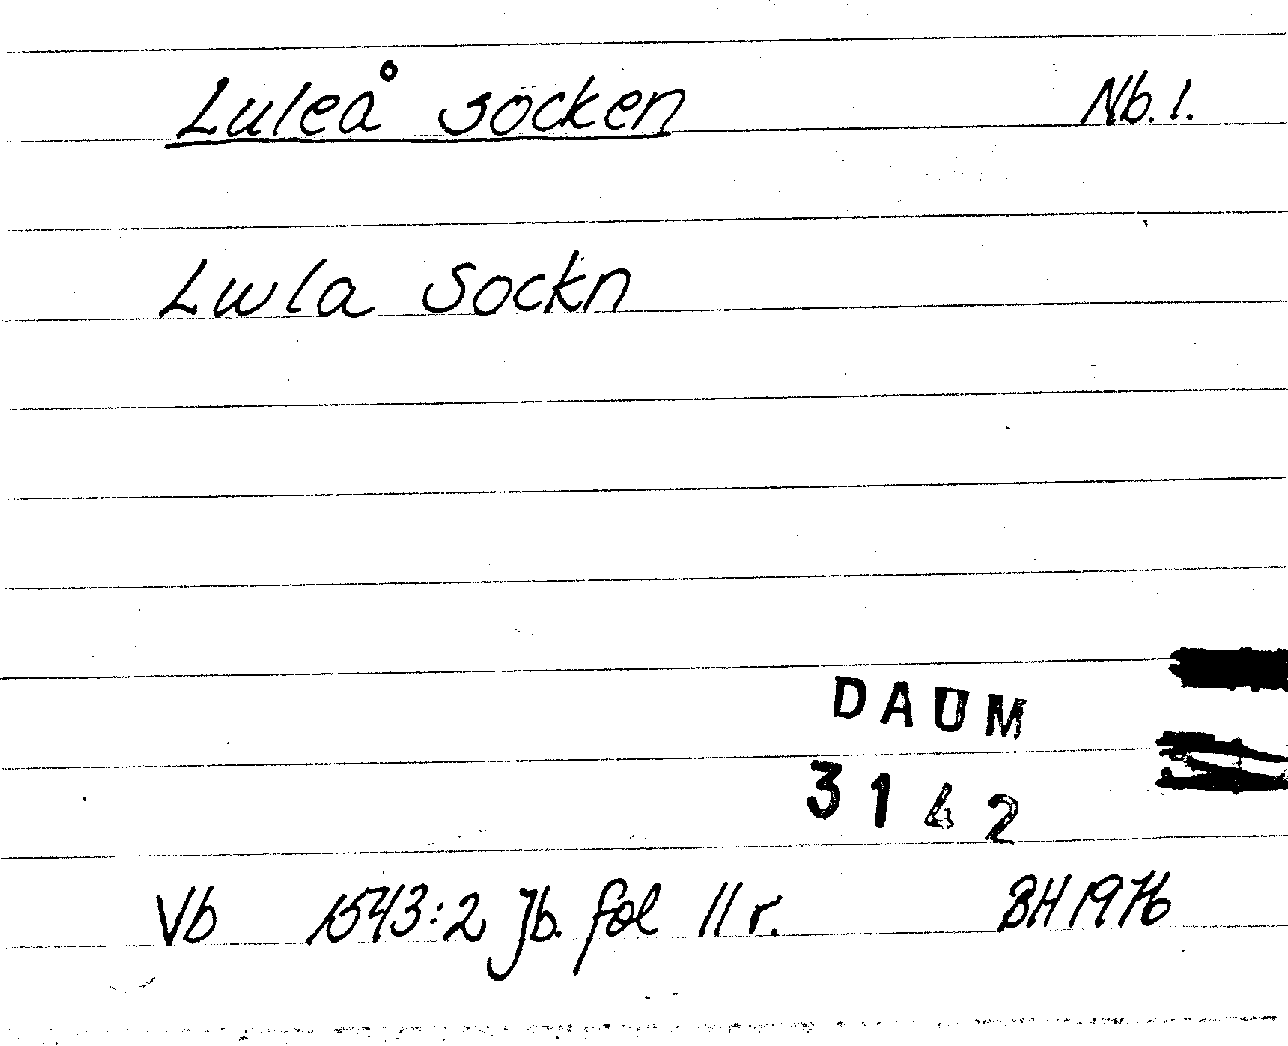 Luleå socken Nb. 1.
Lwla Sockn
DAUM
3142
Vb 1543:2 Jb. fol 11 r. BH 1976